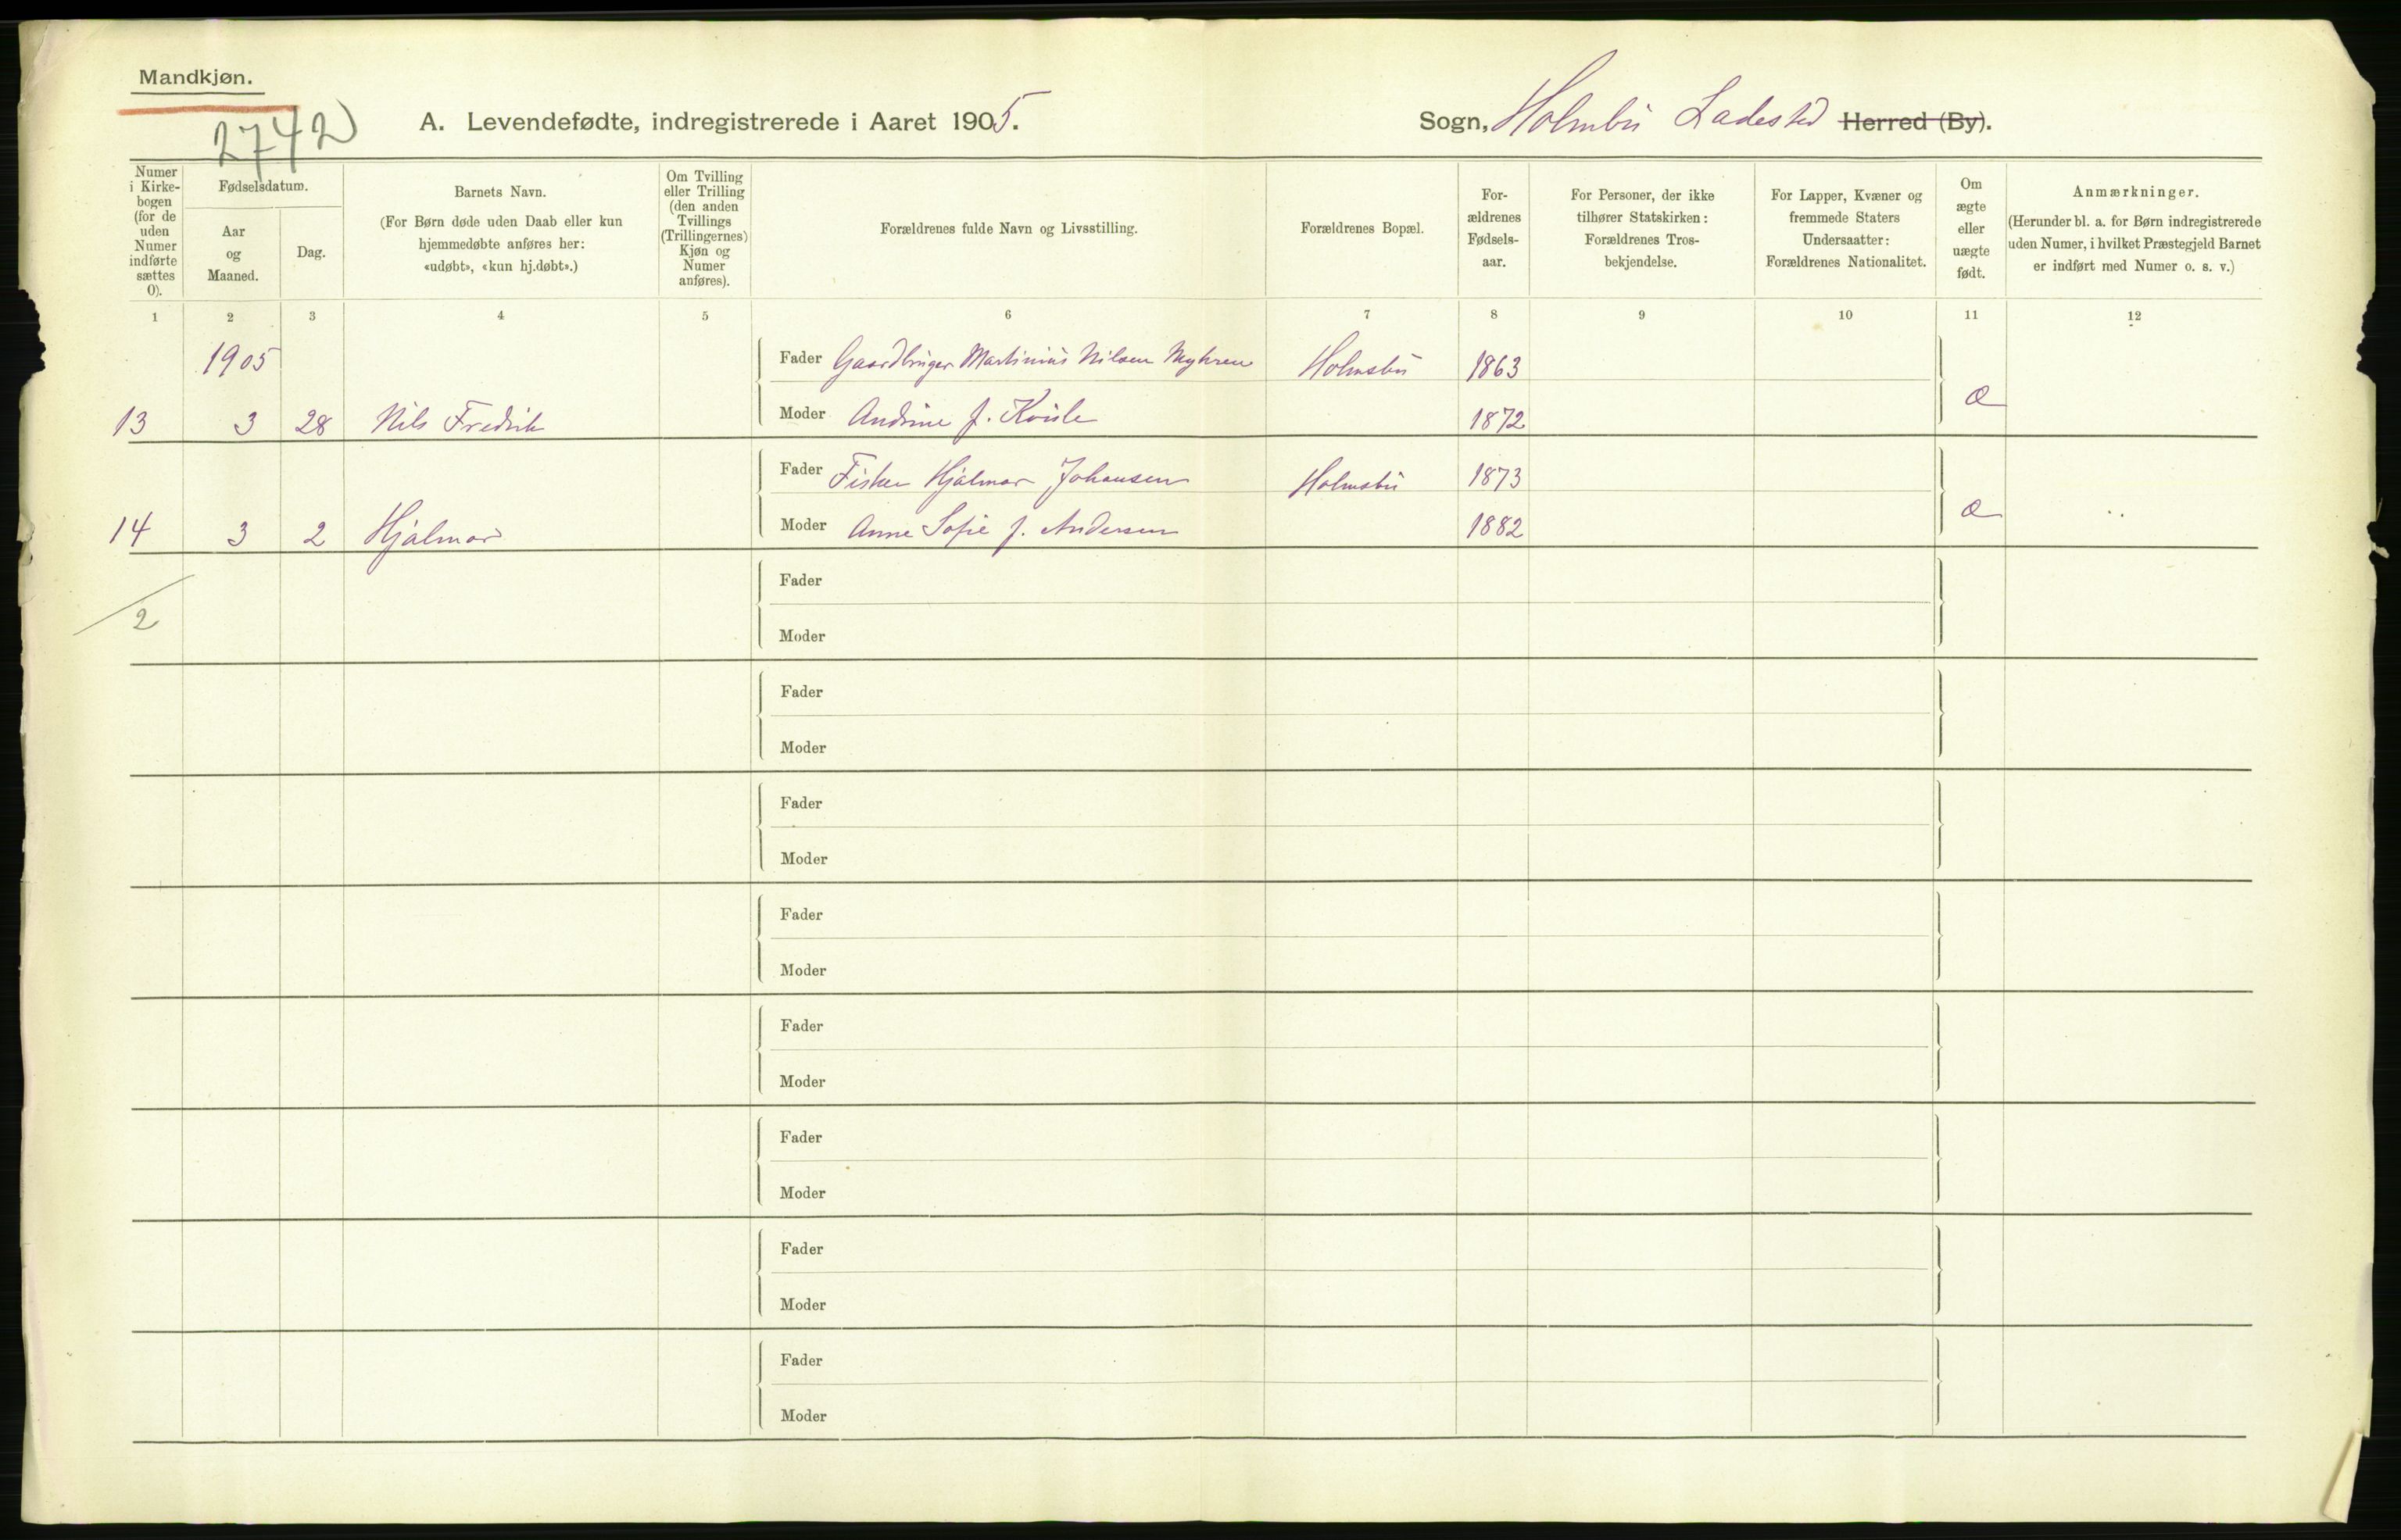 Mandkjøn.
2742
A. Levendefødte, indregistrerede i Aaret 1905.
Sogn, Holmsbu Ladested Herred (By).
Numer i Kirkebogen (for de uden Numer indførte sættes 0).
Fødselsdatum.
Aar og Maaned.
Dag.
Barnets Navn.
(For Børn døde uden Daab eller kun
hjemmedøbte anføres her:
«udøbt», «kun hj.døbt».)
Om Tvilling
eller Trilling
(den anden
Tvillings
(Trillingernes)
Kjøn og
Numer
anføres).
Forældrenes fulde Navn og Livsstilling.
Forældrenes Bopæl.
For-
ældrenes
Fødsels-
aar.
For Personer, der ikke
tilhører Statskirken:
Forældrenes Tros-
bekjendelse.
For Lapper, Kvæner og
fremmede Staters
Undersaatter:
Forældrenes Nationalitet.
Om
ægte
eller
uægte
født.
Anmærkninger.
(Herunder bl. a. for Børn indregistrerede
uden Numer, i hvilket Præstegjeld Barnet
er indført med Numer o. s. v.)
1 2 3 4 5 6 7 8 9 10 11 12
1905
Fader Gaardbruger Martinius Nilsen Myhren Holmsbu 1863
13 3 28 Nils Fredrik Moder Andrine f. Kvisle 1872 æ
Fader Fisker Hjalmar Johansen Holmsbu 1873
14 3 2 Hjalmar Moder Anne Sofie f. Andersen 1882 æ
2
Fader
Moder
Fader
Moder
Fader
Moder
Fader
Moder
Fader
Moder
Fader
Moder
Fader
Moder
Fader
Moder